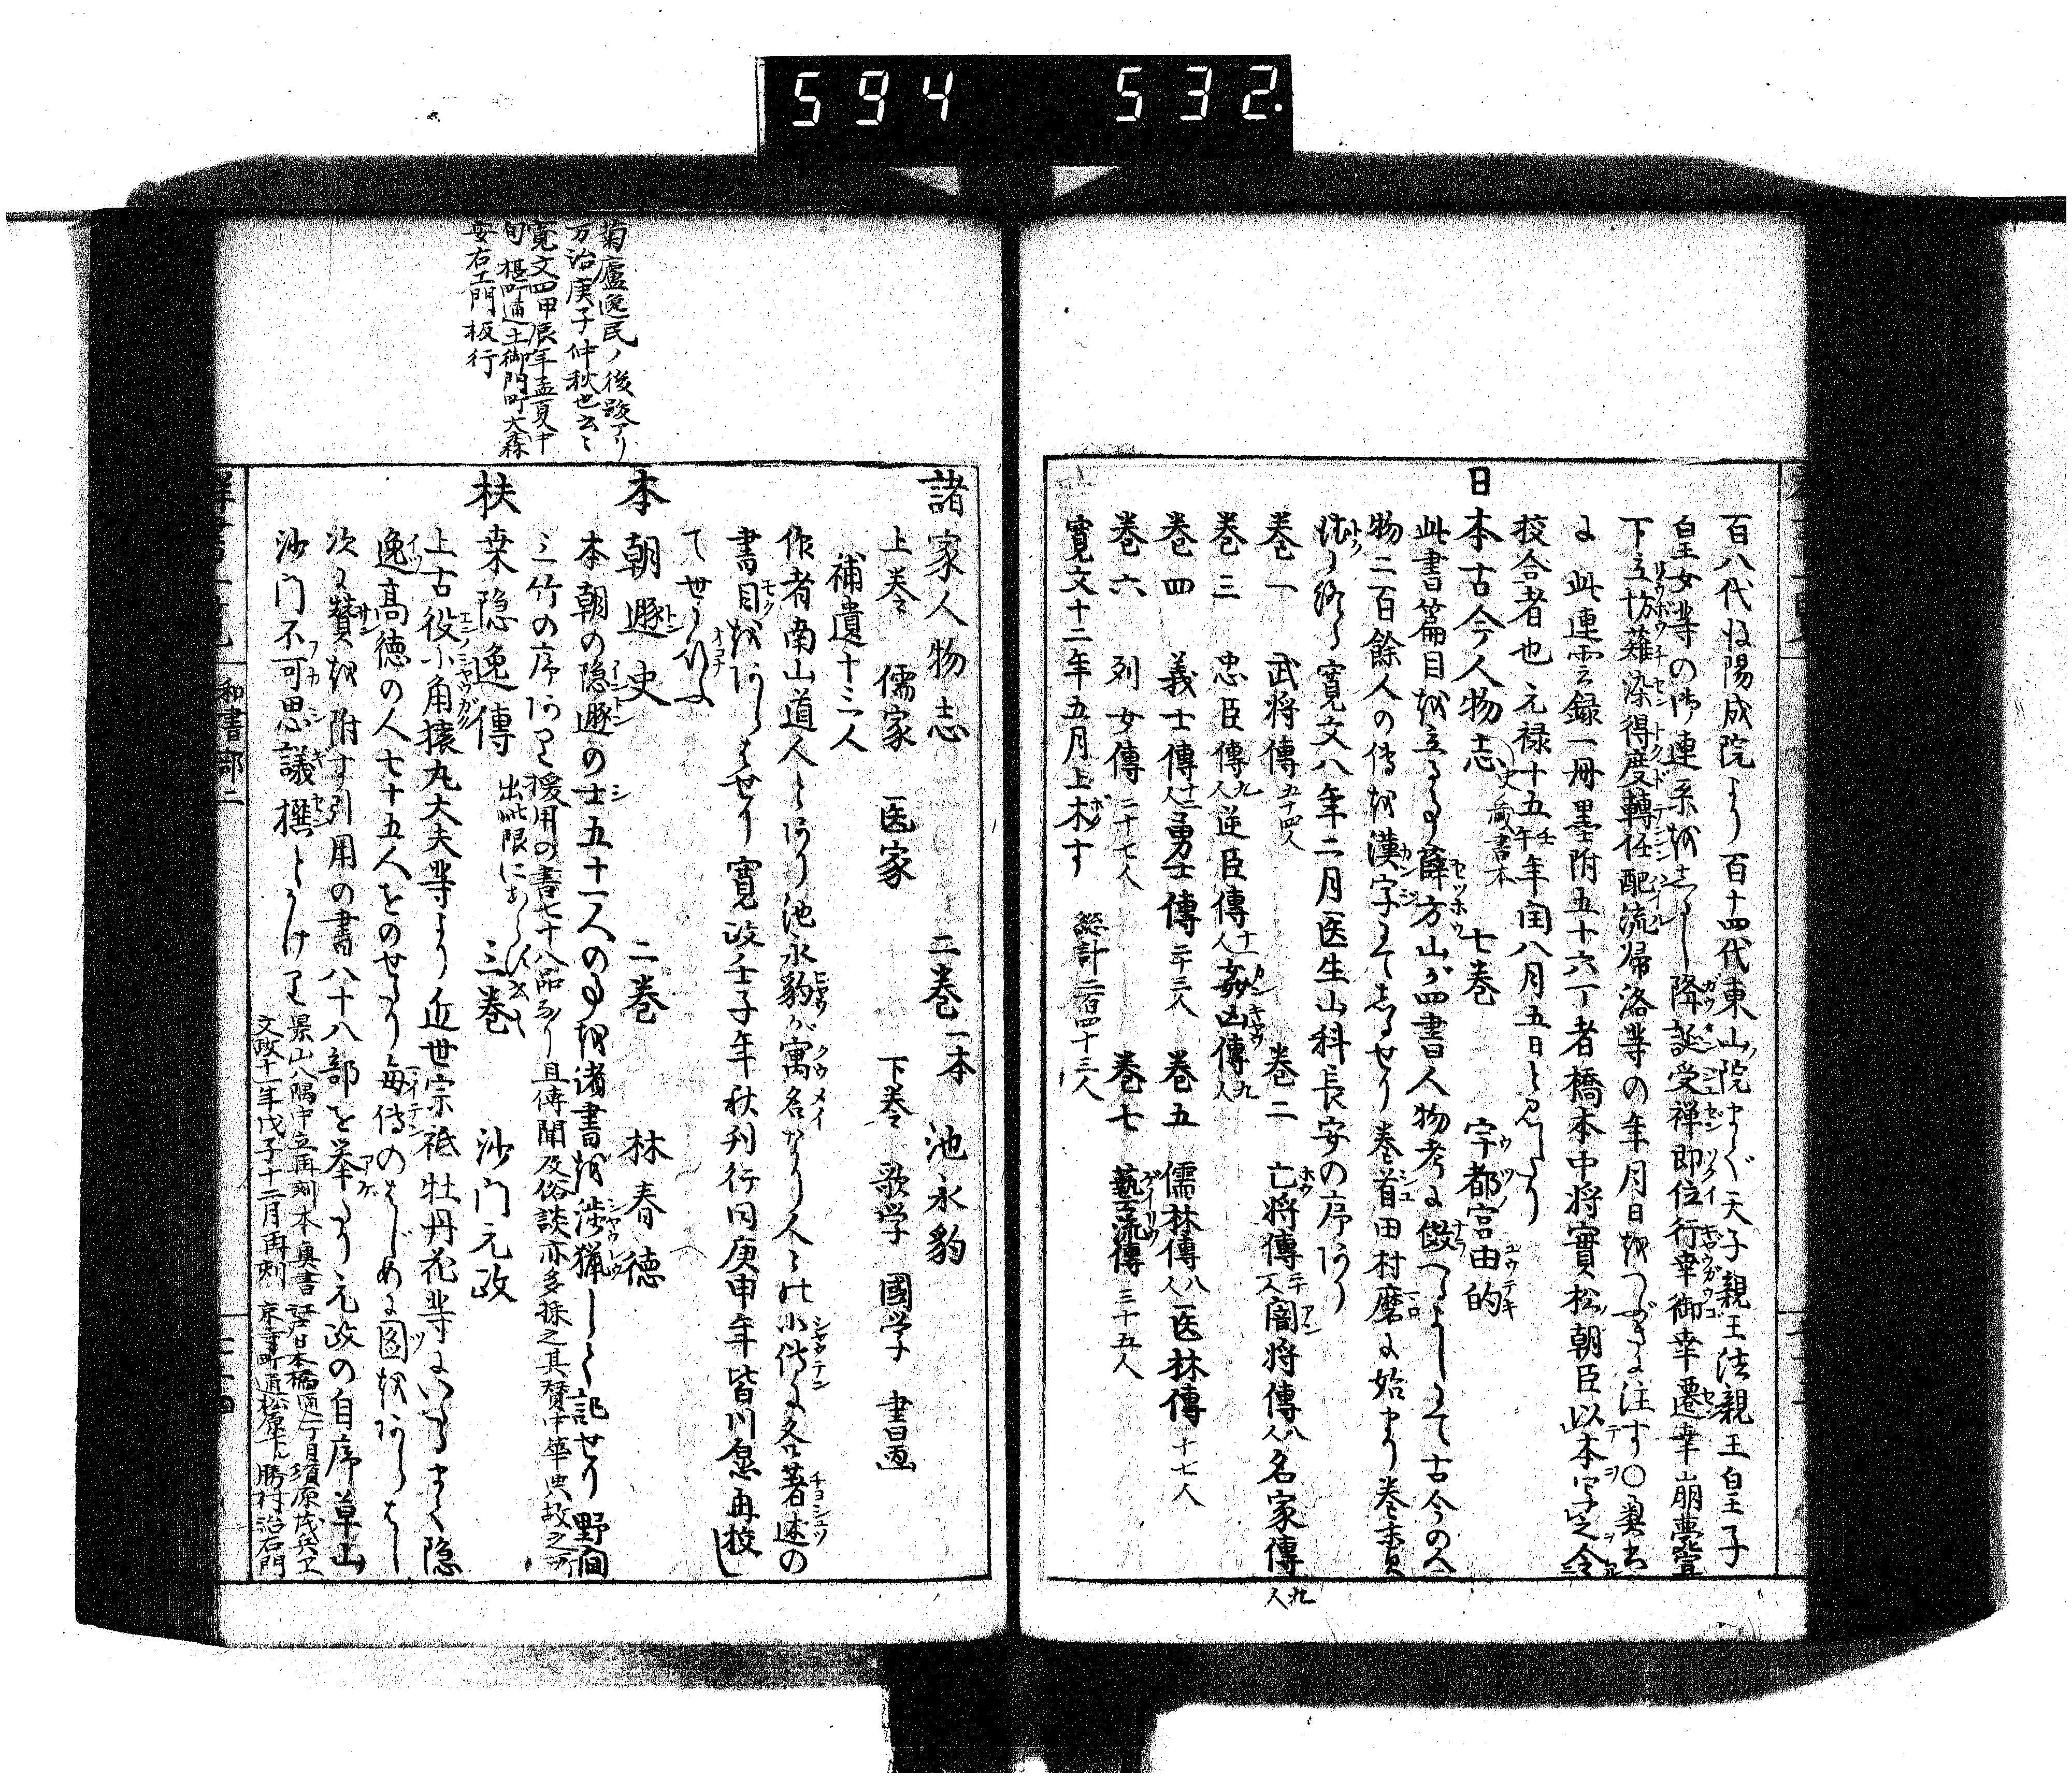 594 532.
百八代後陽成院より百十四代東山院まで天子親王法親王皇子
皇女等の御連系をしるし降誕受禅即位行幸御幸遷幸崩薨
下立坊薙染得度轉任配流帰洛等の年月日をつぶさに注す〇奥書
に此連雲録一冊墨附五十六丁者橋本中将實松朝臣以本写之令
校合者也元禄十五壬午年閏八月五日と見えたり
日本古今人物志 史 蔵書本 七巻 宇都宮由的
此書篇目を立る事薛方山が四書人物考に倣へるよしにて古今の人
物二百餘人の傳を漢字にてしるせり巻首田村磨に始まり巻末
に終る寛文八年二月医生山科長安の序あり
巻一 武将傳五十四人 巻二 亡将傳 闇将傳八人 名家傳九人
巻三 忠臣傳九人 逆臣傳十一人 姦凶傳九人
巻四 義士傳十二人 勇士傳二十三人 巻五 儒林傳八人 医林傳十七人
巻六 列女傳二十七人 巻七 藝流傳三十五人
寛文十二年五月上木す 総計二百四十三人
諸家人物志 二巻 一本 池永豹
上巻 儒家 医家 下巻 歌学 國学 書画
補遺十三人
作者南山道人とあり池永豹が寓名なり人々の小傳に各著述の
書目をあらはせり寛政壬子年秋刊行同庚申年皆川愿再校し
て世に行ふ
本朝遯史 二巻 林春徳
本朝の隠遯の士五十一人の事を諸書を渉猟して記せり野間
三竹の序あり 援用の書七十八品あり且傳聞及俗談亦多採之其賛中華典故之所
出此限にあらずと云々
扶桒隠逸傳 三巻 沙門元政
上古役小角猿丸大夫等より近世宗祇牡丹花等にいたるまで隠
逸高徳の人七十五人をのせたり毎傳のはじめに図をあらはし
次に賛を附す引用の書八十八部を挙たり元政の自序草山
沙門不可思議撰とかけり 景山八隅中立再刻本奥書 江戸日本橋通一丁目須原茂兵衛
文政十一年戊子十二月再刻 京寺町通松原下ル勝村治右門
菊廬逸民ノ後跋アリ
万治庚子仲秋也云々
寛文四甲辰年孟夏中
旬 椹町通土御門町大森
安右エ門板行
群書一覧 和書部二 二十四